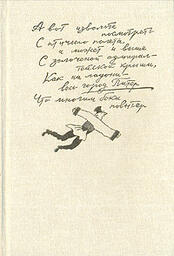 А вот извольте
посмотреть
С птичьего полета,
и может и выше
С золоченой адмирал-
тейской крыши,
Как на ладони —
весь город Питер
Что многим бока
повытер